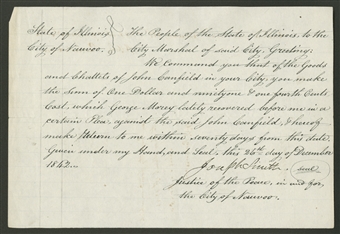 State of Illinois } The People of the State of Illinois to the
City of Nauvoo. } City Marshal of said City, Greeting:
We Command you that of the Goods
and Chattels of John Canfield in your City, you make
the Sum of One Dollar and ninety one & one fourth Cents
Cost. which George Morey lately recovered before me in a
certain Plea against the said John Canfield, & hereof
make Return to me within seventy days from this date.
Given under my Hand, and Seal, this 26th day of December
1842.
Joseph Smith seal
Justice of the Peace, in and for
the City of Nauvoo.